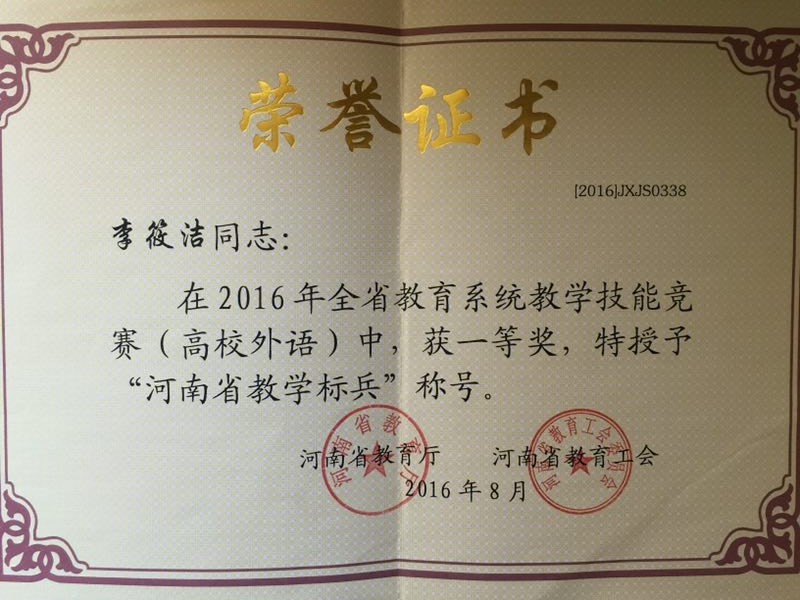 荣誉证书
[2016]JXJS0338
李筱洁同志：
在2016年全省教育系统教学技能竞
赛（高校外语）中，获一等奖，特授予
“河南省教学标兵”称号。
河南省教育厅 河南省教育工会
2016年8月
河南省教育厅
河南省教育工会委员会